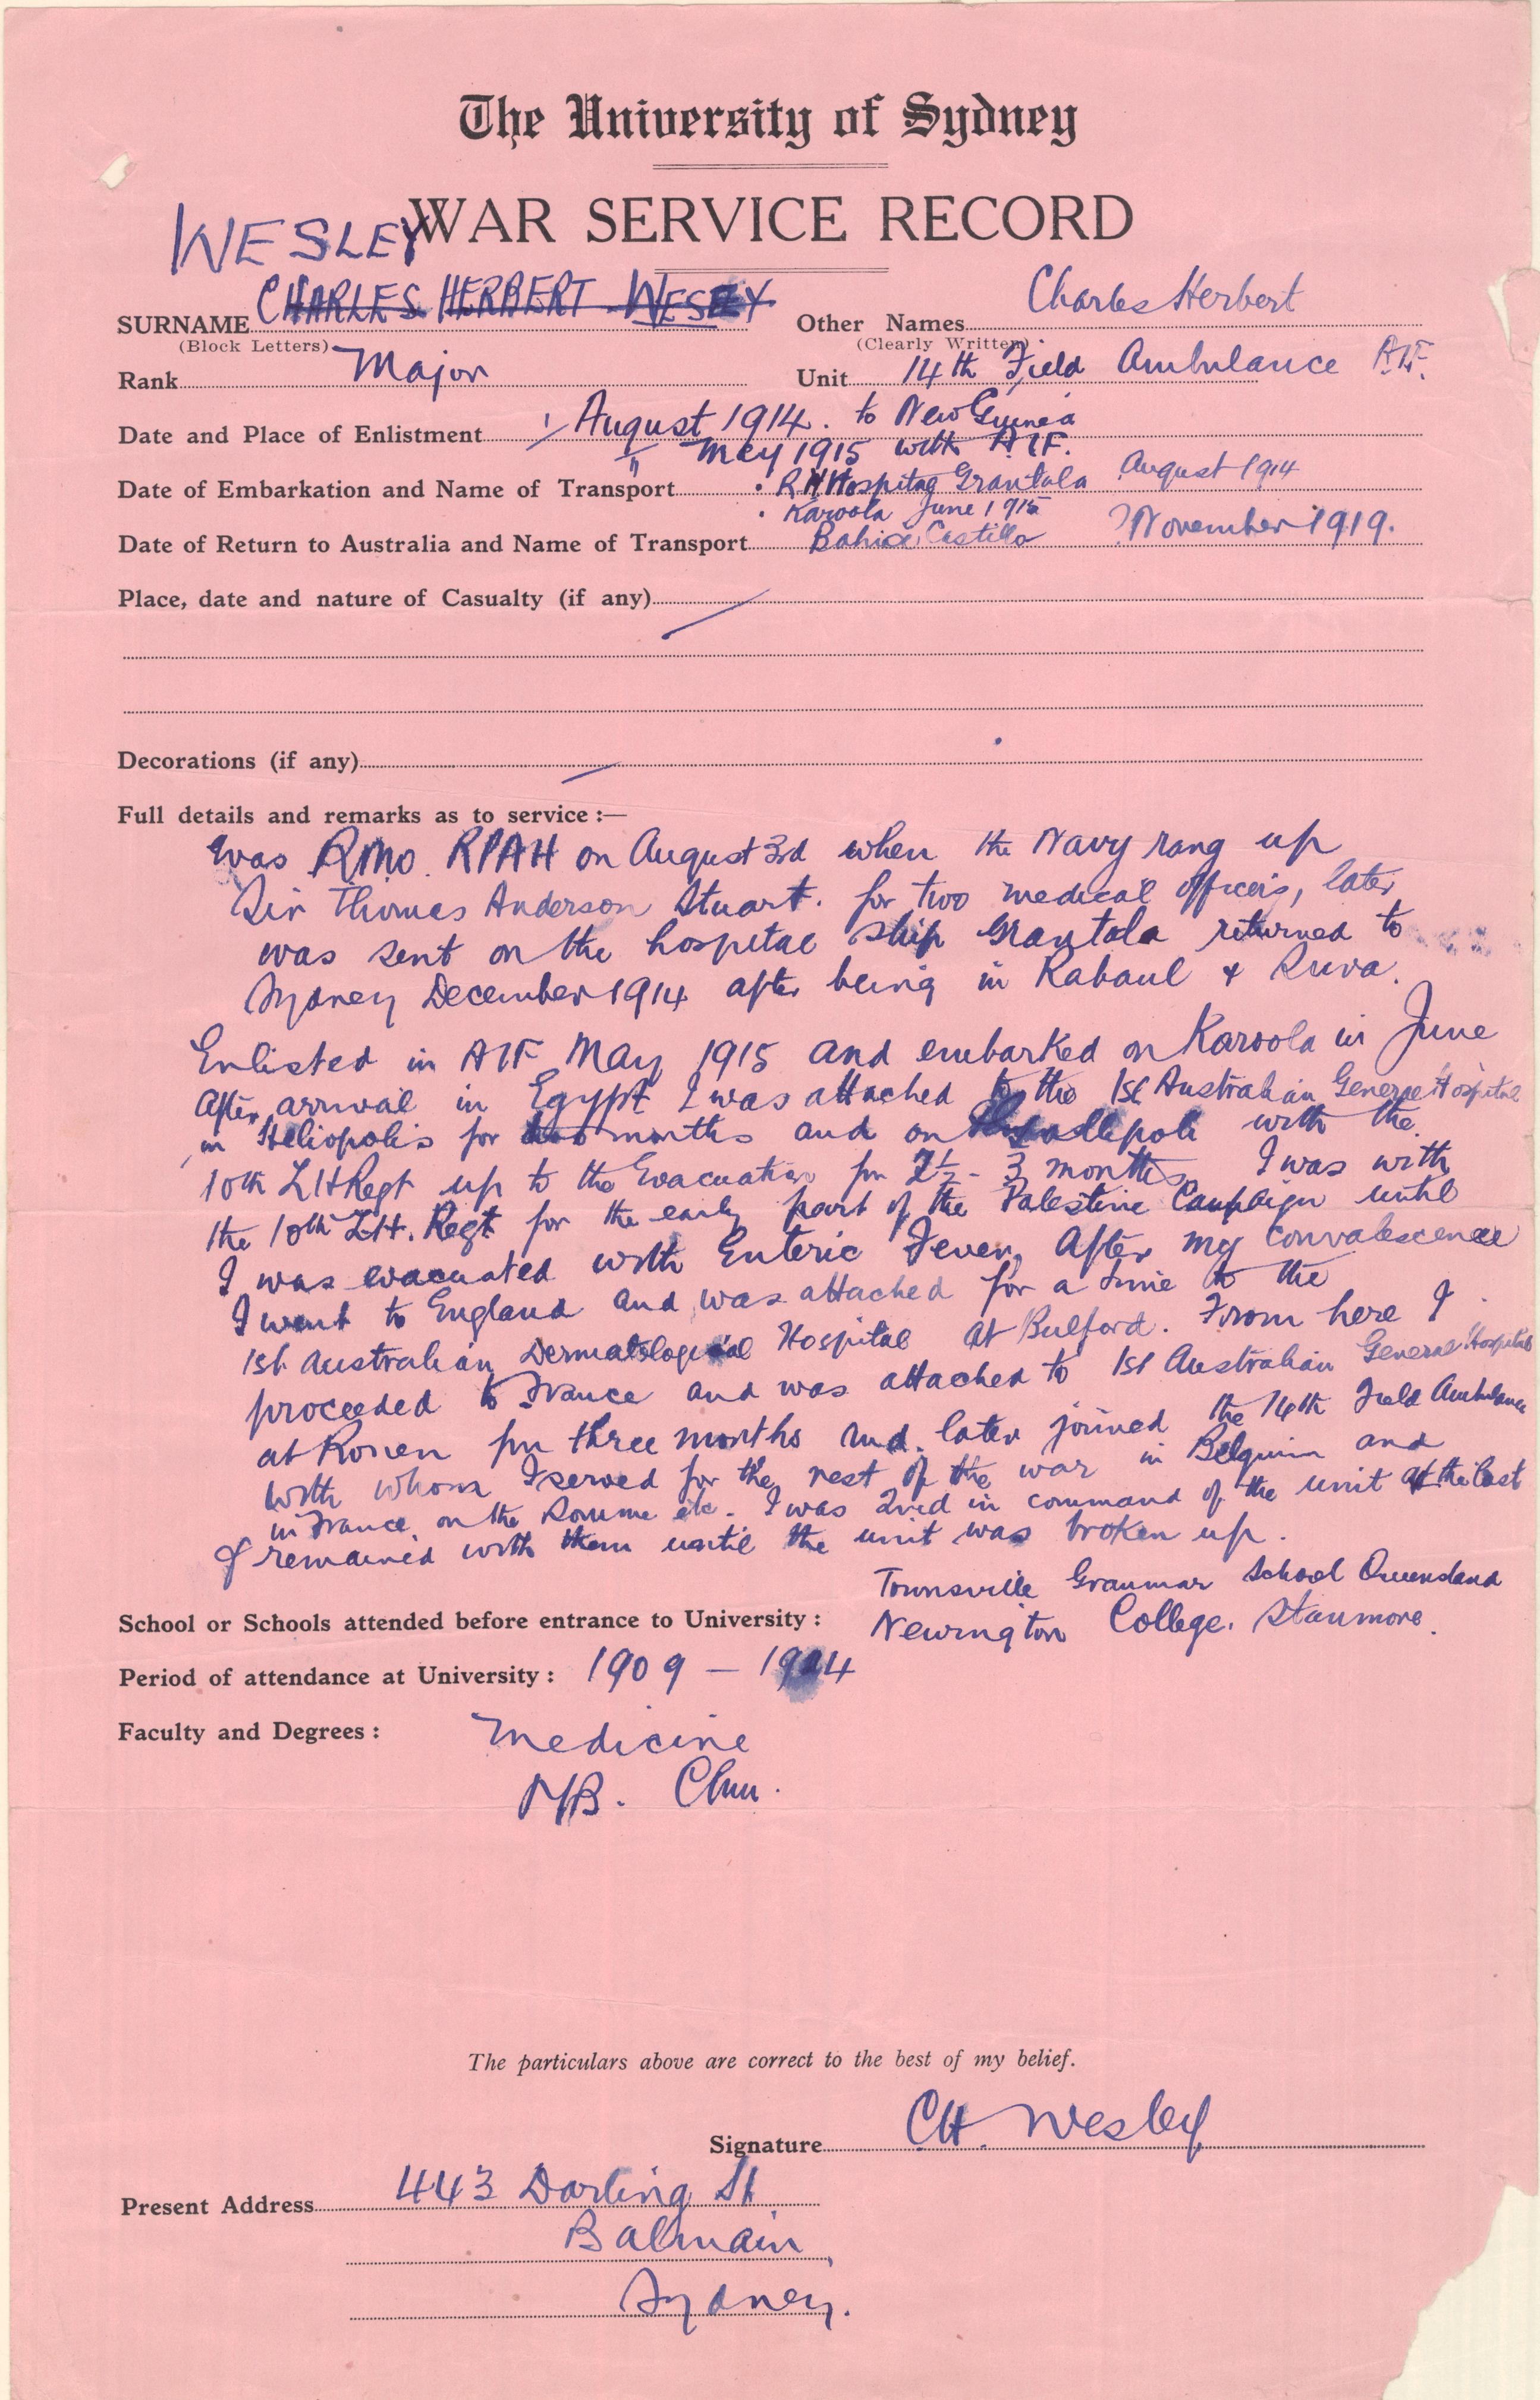 The University of Sydney
WAR SERVICE RECORD
WESLEY
SURNAME CHARLES HERBERT WESLEY Other Names Charles Herbert
(Block Letters) (Clearly Written)
Rank Major Unit 14th Field Ambulance A.I.F.
Date and Place of Enlistment 1/ August 1914. to New Guinea
" May 1915 with A.I.F.
Date of Embarkation and Name of Transport Hospital Grantala August 1914
Karoola June 1915
Date of Return to Australia and Name of Transport Bahia Castillo ?November 1919.
Place, date and nature of Casualty (if any)
Decorations (if any)
Full details and remarks as to service :—
Was RMO. RPAH on August 3rd when the Navy rang up
Sir Thomas Anderson Stuart. for two medical officers, later
was sent on the hospital ship Grantala returned to
Sydney December 1914 after being in Rabaul & Suva.
Enlisted in AIF May 1915 and embarked on Karoola in June
After arrival in Egypt I was attached to the 1st Australian General Hospital
in Heliopolis for two months and on Gallipoli with the
10th LH Regt up to the Evacuation for 2½ - 3 months I was with
the 10th L.H. Regt for the early part of the Palestine Campaign until
I was evacuated with Enteric Fever. After my convalescence
I went to England and was attached for a time to the
1st Australian Dermatological Hospital at Bulford. From here I
proceeded to France and was attached to 1st Australian General Hospital
at Rouen for three months and later joined the 14th Field Ambulance
with whom I served for the rest of the war in Belguim and
in France, on the Somme etc. I was 2nd in command of the unit at the last
& remained with them until the unit was broken up.
Townsville Grammar School Queensland
School or Schools attended before entrance to University : Newington College. Stanmore.
Period of attendance at University : 1909 — 1914
Faculty and Degrees : Medicine
MB. ChM.
The particulars above are correct to the best of my belief.
Signature CH. Wesley
Present Address 443 Darling St
Balmain,
Sydney.